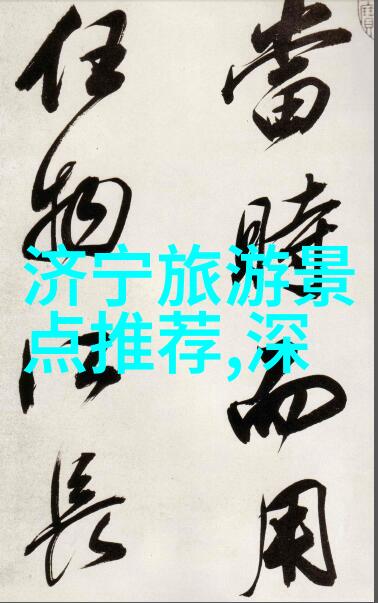 當時而用
任物長
济宁旅游景
点推荐,深